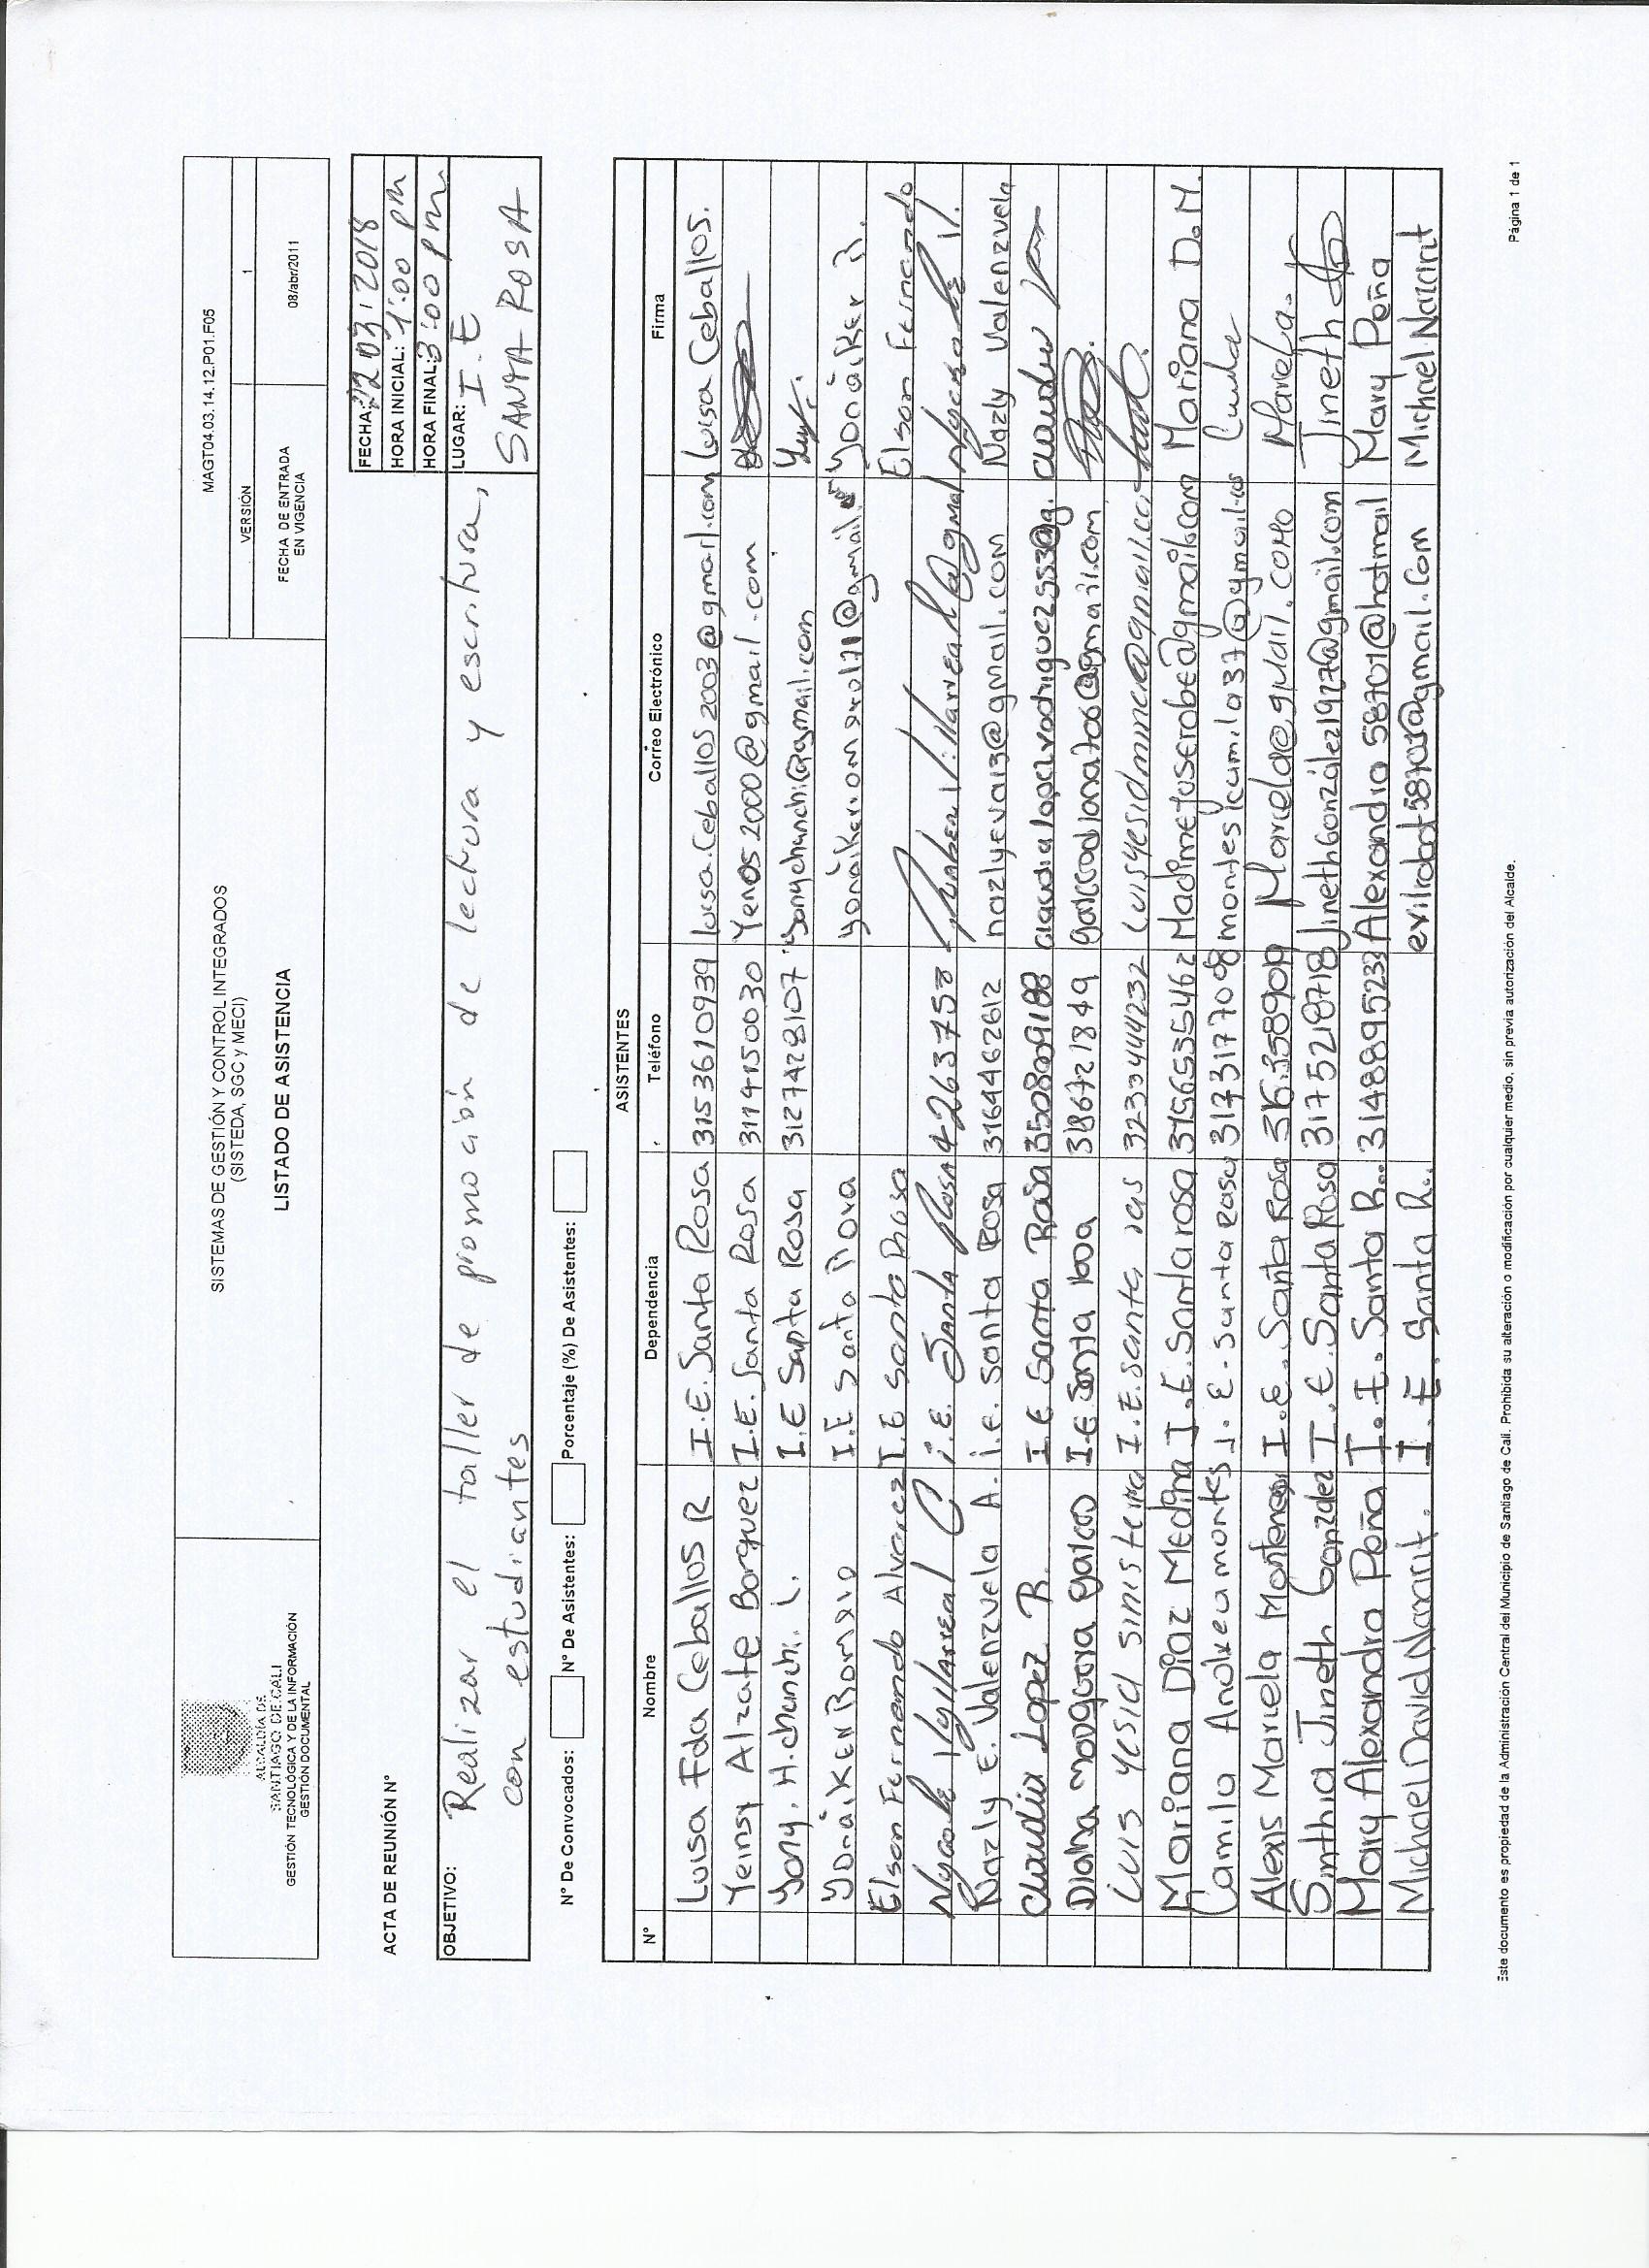 ALCALDÍA DE
SANTIAGO DE CALI
GESTIÓN TECNOLÓGICA Y DE LA INFORMACIÓN
GESTIÓN DOCUMENTAL
SISTEMAS DE GESTIÓN Y CONTROL INTEGRADOS
(SISTEDA, SGC y MECI)
LISTADO DE ASISTENCIA
MAGT04.03.14.12.P01.F05
VERSIÓN 1
FECHA DE ENTRADA EN VIGENCIA 08/abr/2011
ACTA DE REUNIÓN N°
FECHA: 22 03 2018
HORA INICIAL: 1:00 pm
HORA FINAL: 3:00 pm
OBJETIVO: Realizar el taller de promoción de lectura y escritura,
con estudiantes
LUGAR: I.E
SANTA ROSA
N° De Convocados: N° De Asistentes: Porcentaje (%) De Asistentes:
ASISTENTES
N° Nombre Dependencia Teléfono Correo Electrónico Firma
Luisa Fda Ceballos R I.E. Santa Rosa 3153610939 luisa.Ceballos2003@gmail.com Luisa Ceballos.
Yeinsy Alzate Borquez I.E. Santa Rosa 3114150030 Yenos2000@gmail.com
Yony. H. chanchi. L. I.E Santa Rosa 3127428107 Yonychanchi@gmail.com
Yonaiker Romero I.E Santa Rova Yonaiker R.
Elson Fernando Alvarez I.E Santa Rosa Elson Fernando
Nycole Vyllarreal C i.E. Santa Rosa 4263758
Nazly E. Valenzuela A. i.e. santa Rosa 3164462612 nazlyeva13@gmail.com Nazly Valenzuela
Claudia Lopez R. I E Santa Rosa claudialopezrodriguez553@g. claudia
Diana Mosquera garces I.E Santa 3186721849
Luis yesid sinisterra I.E. santa 3233444232
Mariana Diaz Medina I.E. Santa rosa 3156535462 Madimejoserobe@gmail.com Mariana D. M.
Camila Andrea montes I. E. Santa Rosa 3173177008
Alexis Marcela I. E. Santa Rosa Marcela@gmail.como Marcela.
Sinthia Jineth Gonzalez I. E. Santa Rosa 3175218718 JinethGonzález1927@gmail.com Jineth
Mary Alexandra Peña I. E. Santa R.. 3148895233 Alexandra58701@hotmail Mary Peña
Michael David Nazarit. I. E. Santa R.. evilrobot58701@gmail.com Michael Nazarit
Este documento es propiedad de la Administración Central del Municipio de Santiago de Cali. Prohibida su alteración o modificación por cualquier medio, sin previa autorización del Alcalde.
Página 1 de 1